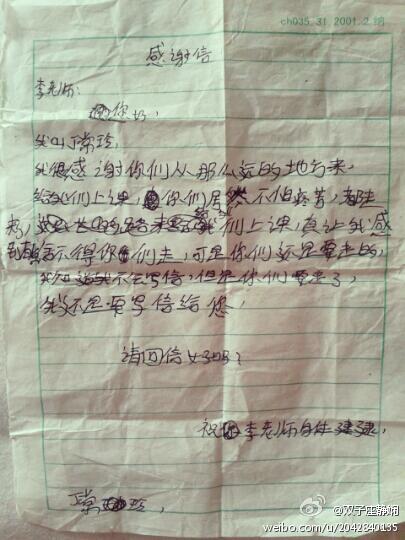 ch035.31.2001.2.绢
感谢信
李老师:
你好,
我叫常玲,
我很感谢你们从那么远的地方来
给我们上课,你们居然不怕辛苦,
来,路来给我们上课,真让我感
到舍不得你们走,可是你们还是要走的,
我不会写信,但是你们要走了,
我不是要写信给您,
请回信好吗?
祝李老师身体健康,
常玲,
@双子座静娴
weibo.com/u/2042840135